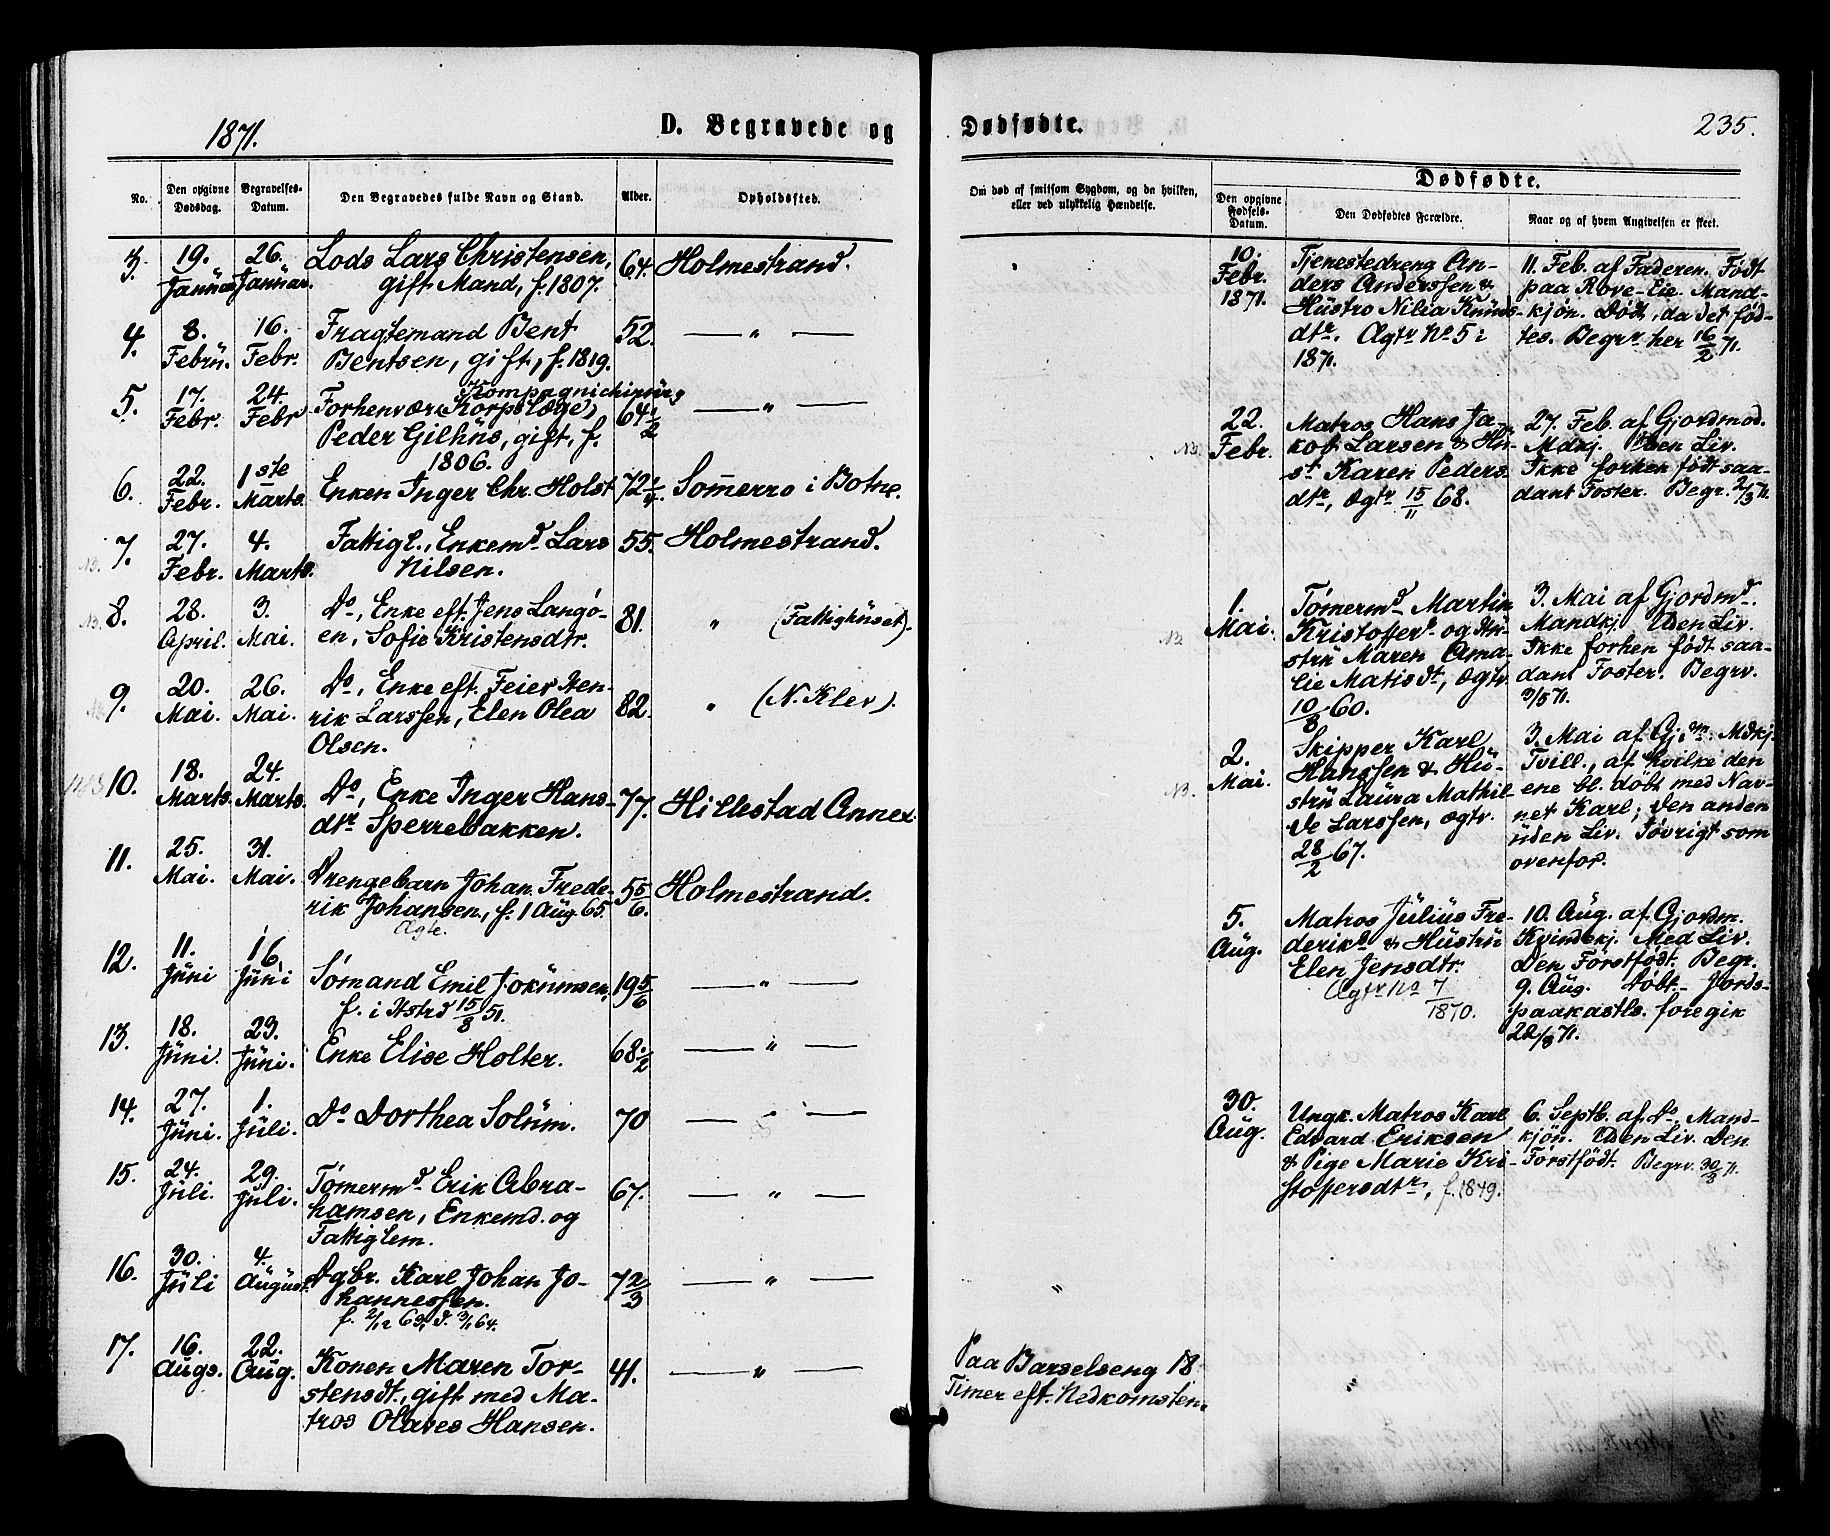 1871.
D. Begravede og
No.
Den opgivne Dødsdag.
Begravelses-Datum.
Den Begravedes fulde Navn og Stand.
Alder.
Opholdssted.
3. 19. Januar 26. Januar. Lods Lars Christensen, 64. Holmestrand.
gift Mand, f. 1807.
4. 8. Febru. 16. Febr. Fragtemand Bent 52. — " —
Bentsen, gift, f. 1819.
Kompagnichirurg
5. 17. Febr. 24. Febr Forhenvær. (Korpslæge) 64 1/2 — " —
Peder Gilhus, gift, f.
1806.
6. 22. Febr. 1ste Marts. Enken Inger Chr. Holst 72 1/4 Sommerro i Botne.
N3. 7. 27. Febr. 4. Marts. Fattigl., Enkemd. Lars 55. Holmestrand.
Nilsen.
N3. 8. 28. April. 3. Mai. Do, Enke eft. Jens Langø- 81. " (Fattighuset).
en, Sofie Kristensdtr.
9. 20. Mai. 26. Mai. Do, Enke eft. Feier Hen- 82. " (N. Klev).
rik Larssen, Elen Olea
Olsen.
10. 18. Marts. 24. Marts. Do, Enke Inger Hans- 77. Hillestad Annex.
dtr Sperrebakken.
11. 25. Mai. 31. Mai. Drengebarn Johan Frede- 5 5/6. Holmestrand.
rik Johansen, f. 1 Aug. 65.
Ægte.
12. 11. Juni 16. Juni Sømand Emil Jokumsen, 19 5/6 — " —
f. i Hstrd 15/8 51.
13. 18. Juni. 23. Juni. Enke Elise Holter. 68 1/2 — " —
14. 27. Juni. 1. Juli. Do Dorthea Solum. 70 — " —
15. 24. Juli. 29. Juli. Tømermd Erik Abra- 67. — " —
hamsen, Enkemd. og
Fattiglem.
16. 30. Juli 4. August. Dgbr. Karl Johan Jo- 7 2/3 — " —
hannessen.
f. 2/12 63, d. 3/1 64.
17. 16. Augs. 22. Aug. Konen Maren Tor- 41. — " —
stensdt., gift med Ma-
tros Olaves Hansen.
Dødfødte.
235.
Om død af smitsom Sygdom, og da hvilken,
eller ved ulykkelig Hændelse.
Dødfødte.
Den opgivne Fødsels-Datum.
Den Dødfødtes Forældre.
Naar og af hvem Angivelsen er skeet.
10. Febr. 1871. Tjenestedreng An-
ders Anderssen &
Hustro Nilia Knuds-
dtr. Ægtv No 5 i
1871.
11. Feb. af Faderen. Født
paa Rove-Eie. Mand-
kjøn. Dødt, da det fød-
tes. Begrv her 16/2 71.
N3. 22. Febr. Matros Hans Ja-
kob Larsen & Hu-
st. Karen Peders
dtr, Ægtv 15/11 68.
27. Feb. af Gjordmod.
Mdkj. Uden Liv.
Ikke forhen født saa-
dant Foster. Begr. 2/3 71.
N3 1. Mai. Tømermd Martin
Kristoffers. og Hu-
stru Maren Ama-
lie Matisdt, Ægtv.
10/8 60.
3. Mai af Gjordmd.
Mandkj. Uden Liv.
Ikke forhen født saa-
dant Foster. Begrv.
3/5 71.
N3. 2. Mai. Skipper Karl
Hanssen & Hu-
stru Laura Mathil
de Larssen, Ægtv.
28/2 67.
3. Mai af Gj.m. Mdkj.
Tvill., af hvilke den
ene bl. døbt med Nav-
net Karl; den anden
uden Liv. Iøvrigt som
ovenfor.
5. Aug. Matros Julius Fre-
deriks. & Hustru
Elen Jensdtr.
Ægtv No 7/1870.
10. Aug. af Gjordm.
Kvindekj. Med Liv.
Den Førstfødt. Begr.
9. Aug. Døbt. Jords-
paakastls. foregik
22/8 71.
30. Aug. Ungk. Matros Karl
Edvard Eriksen
& Pige Marie Kri-
stoffersdtr, f. 1849.
6. Septb. af Do, Mand-
kjøn. Uden Liv. Den
Førstfødt. Begrv. 30/8 71.
"
Paa Barselseng 18
Timer eft. Nedkomsten.
"